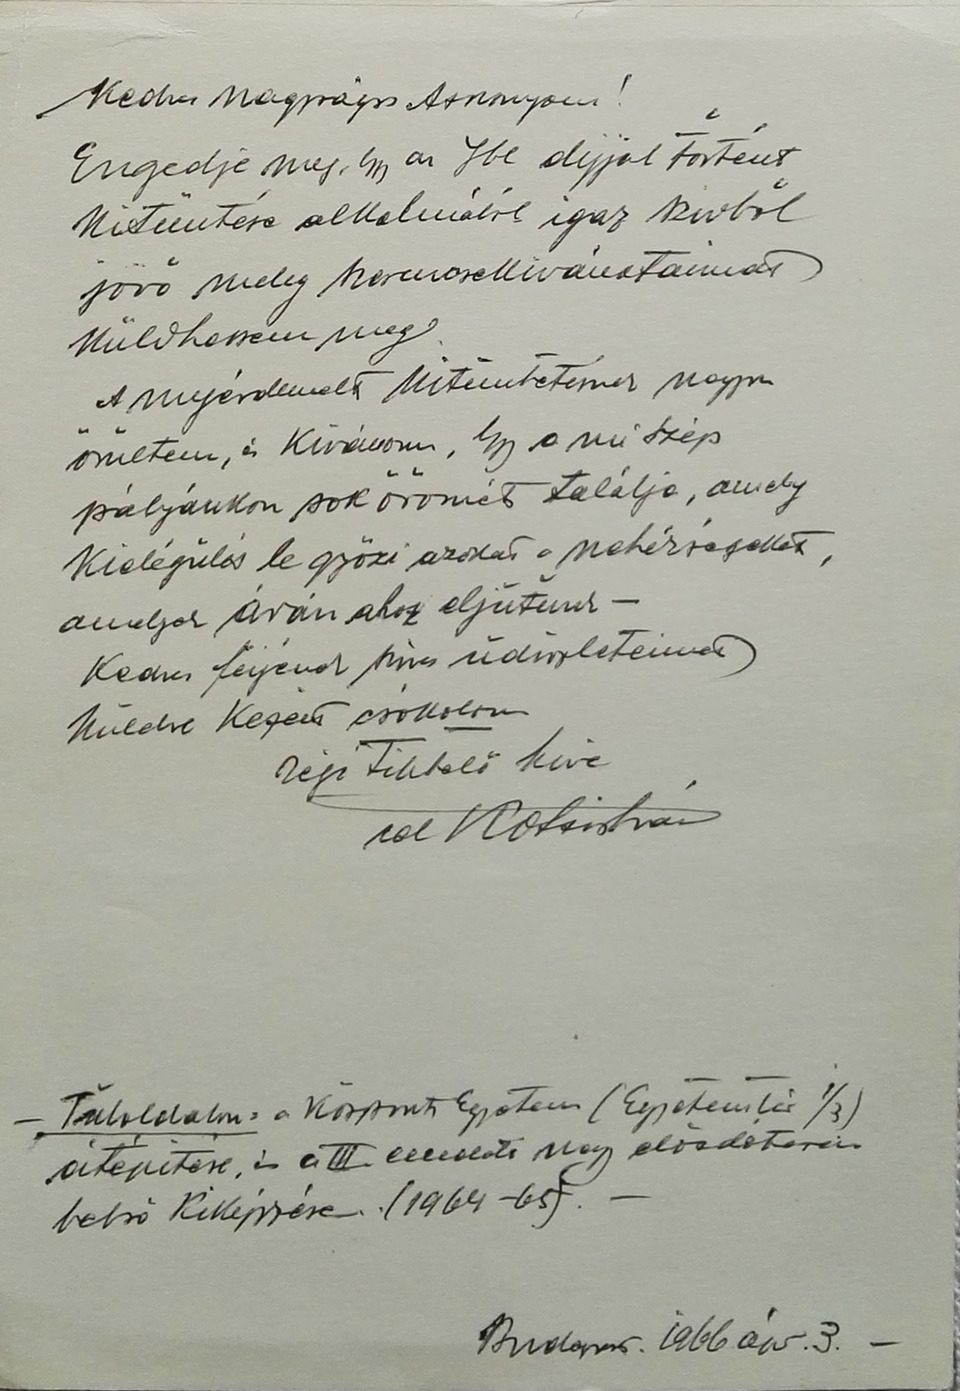 Kedves Nagyságos Asszonyom!
Engedje meg, hogy az Ybl díjjal történt
kitüntetése alkalmából igaz szívből
jövő meleg szerencsekívánataimat
küldhessem meg.
A megérdemelt kitüntetésnek nagyon
örültem, és kívánom, hogy a mi szép
pályánkon sok örömét találja, amely
kielégülés le győzi azokat a nehézségeket,
amelyek árán ahoz eljutunk —
Kedves férjének szives üdvözleteimet
küldve kezeit csókolom
régi tisztelő híve
Kotsis Iván
— Túloldalon: a Központi Egyetem (Egyetem tér 1/3)
átépítése, és a III. emeleti nagy előadóterem
belső kiképzése. (1964-65). —
Budapest. 1966 ápr. 3. —